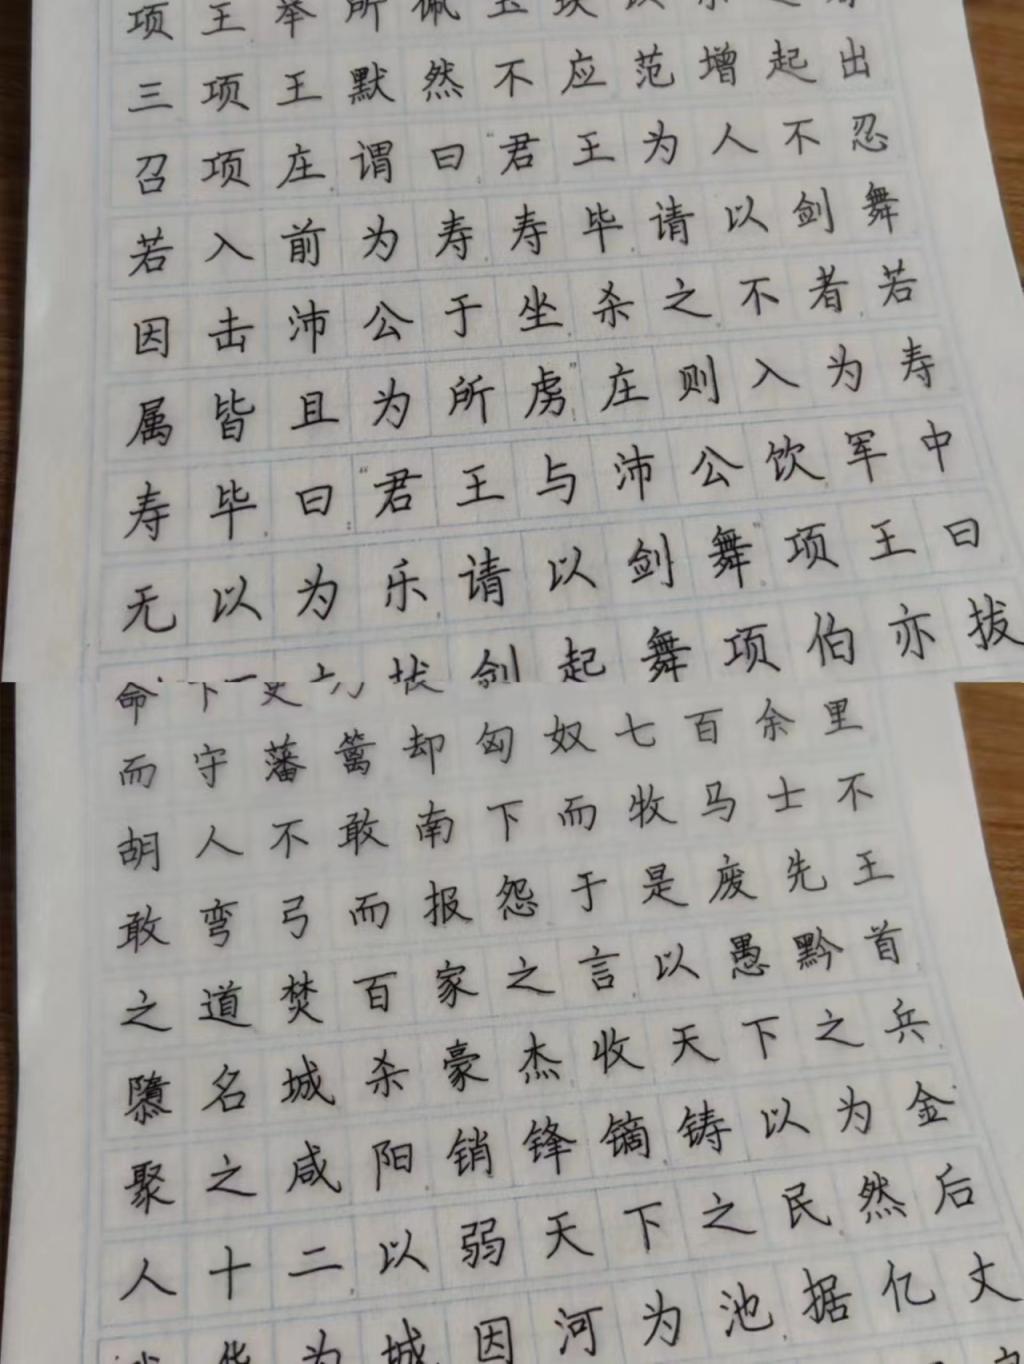 项王举所佩玉玦以示之者
三项王默然不应范增起出
召项庄谓曰“君王为人不忍
若入前为寿寿毕请以剑舞
因击沛公于坐杀之不者若
属皆且为所虏”庄则入为寿
寿毕曰“君王与沛公饮军中
无以为乐请以剑舞”项王曰
剑起舞项伯亦拔
命下吏
而守藩篱却匈奴七百余里
胡人不敢南下而牧马士不
敢弯弓而报怨于是废先王
之道焚百家之言以愚黔首
隳名城杀豪杰收天下之兵
聚之咸阳销锋镝铸以为金
人十二以弱天下之民然后
华为城因河为池据亿丈